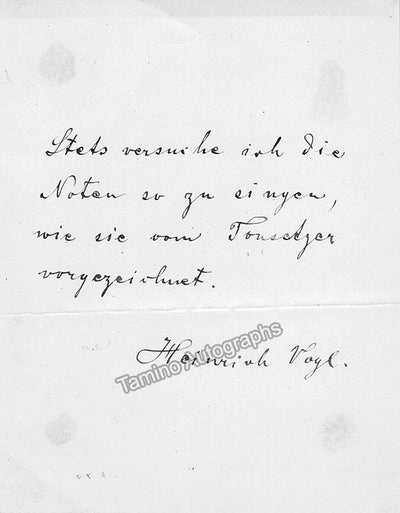 Stets versuche ich die
Noten so zu singen,
wie sie vom Tonsetzer
vorgezeichnet.
Heinrich Vogl.
Tamino Autographs